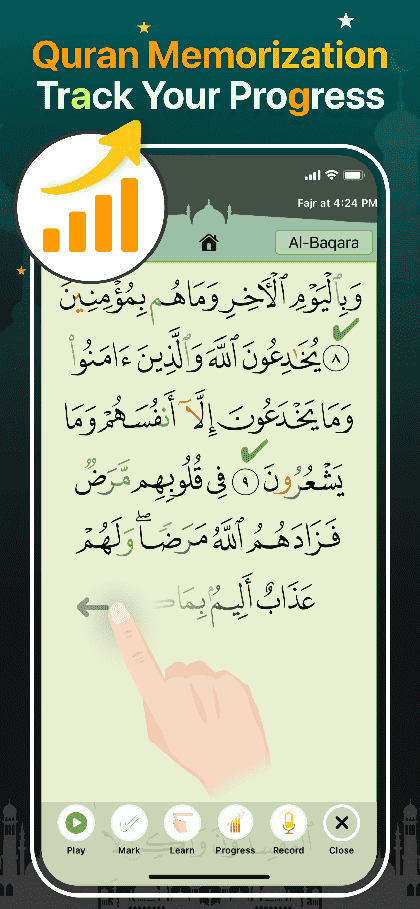 Quran Memorization
Track Your Progress
Fajr at 4:24 PM
Al-Baqara
وَبِٱلْيَوْمِ ٱلْـَٔاخِرِ وَمَا هُم بِمُؤْمِنِينَ
٨ يُخَـٰدِعُونَ ٱللَّهَ وَٱلَّذِينَ ءَامَنُوا۟
وَمَا يَخْدَعُونَ إِلَّآ أَنفُسَهُمْ وَمَا
يَشْعُرُونَ ٩ فِى قُلُوبِهِم مَّرَضٌ
فَزَادَهُمُ ٱللَّهُ مَرَضًا ۖ وَلَهُمْ
عَذَابٌ أَلِيمٌۢ بِمَا
Play
Mark
Learn
Progress
Record
Close